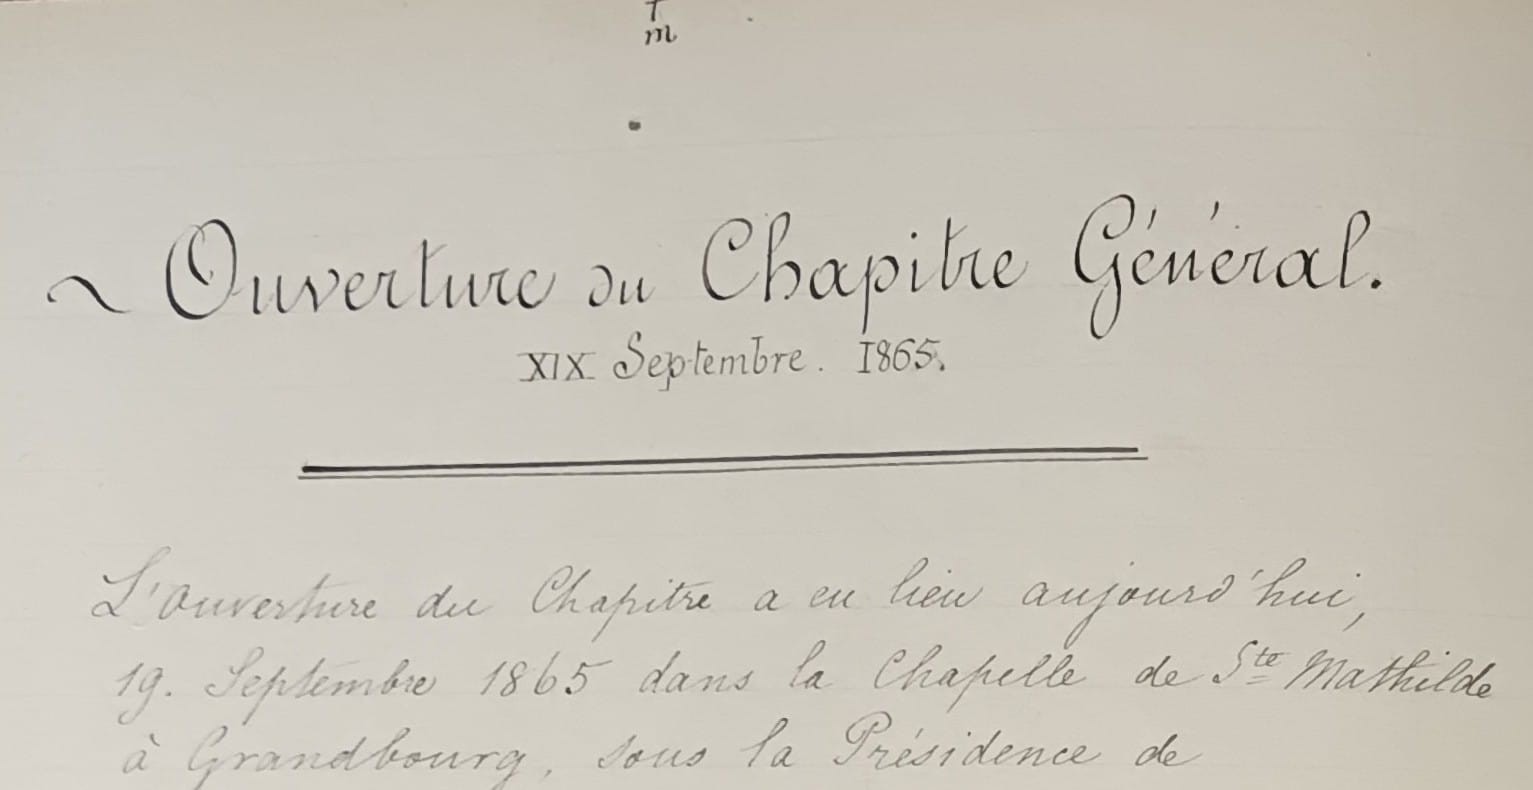 m
~ Ouverture du Chapitre Général.
XIX Septembre. 1865.
L'ouverture du Chapitre a eu lieu aujourd'hui,
19. Septembre 1865 dans la Chapelle de Ste Mathilde
à Grandbourg, sous la Présidence de